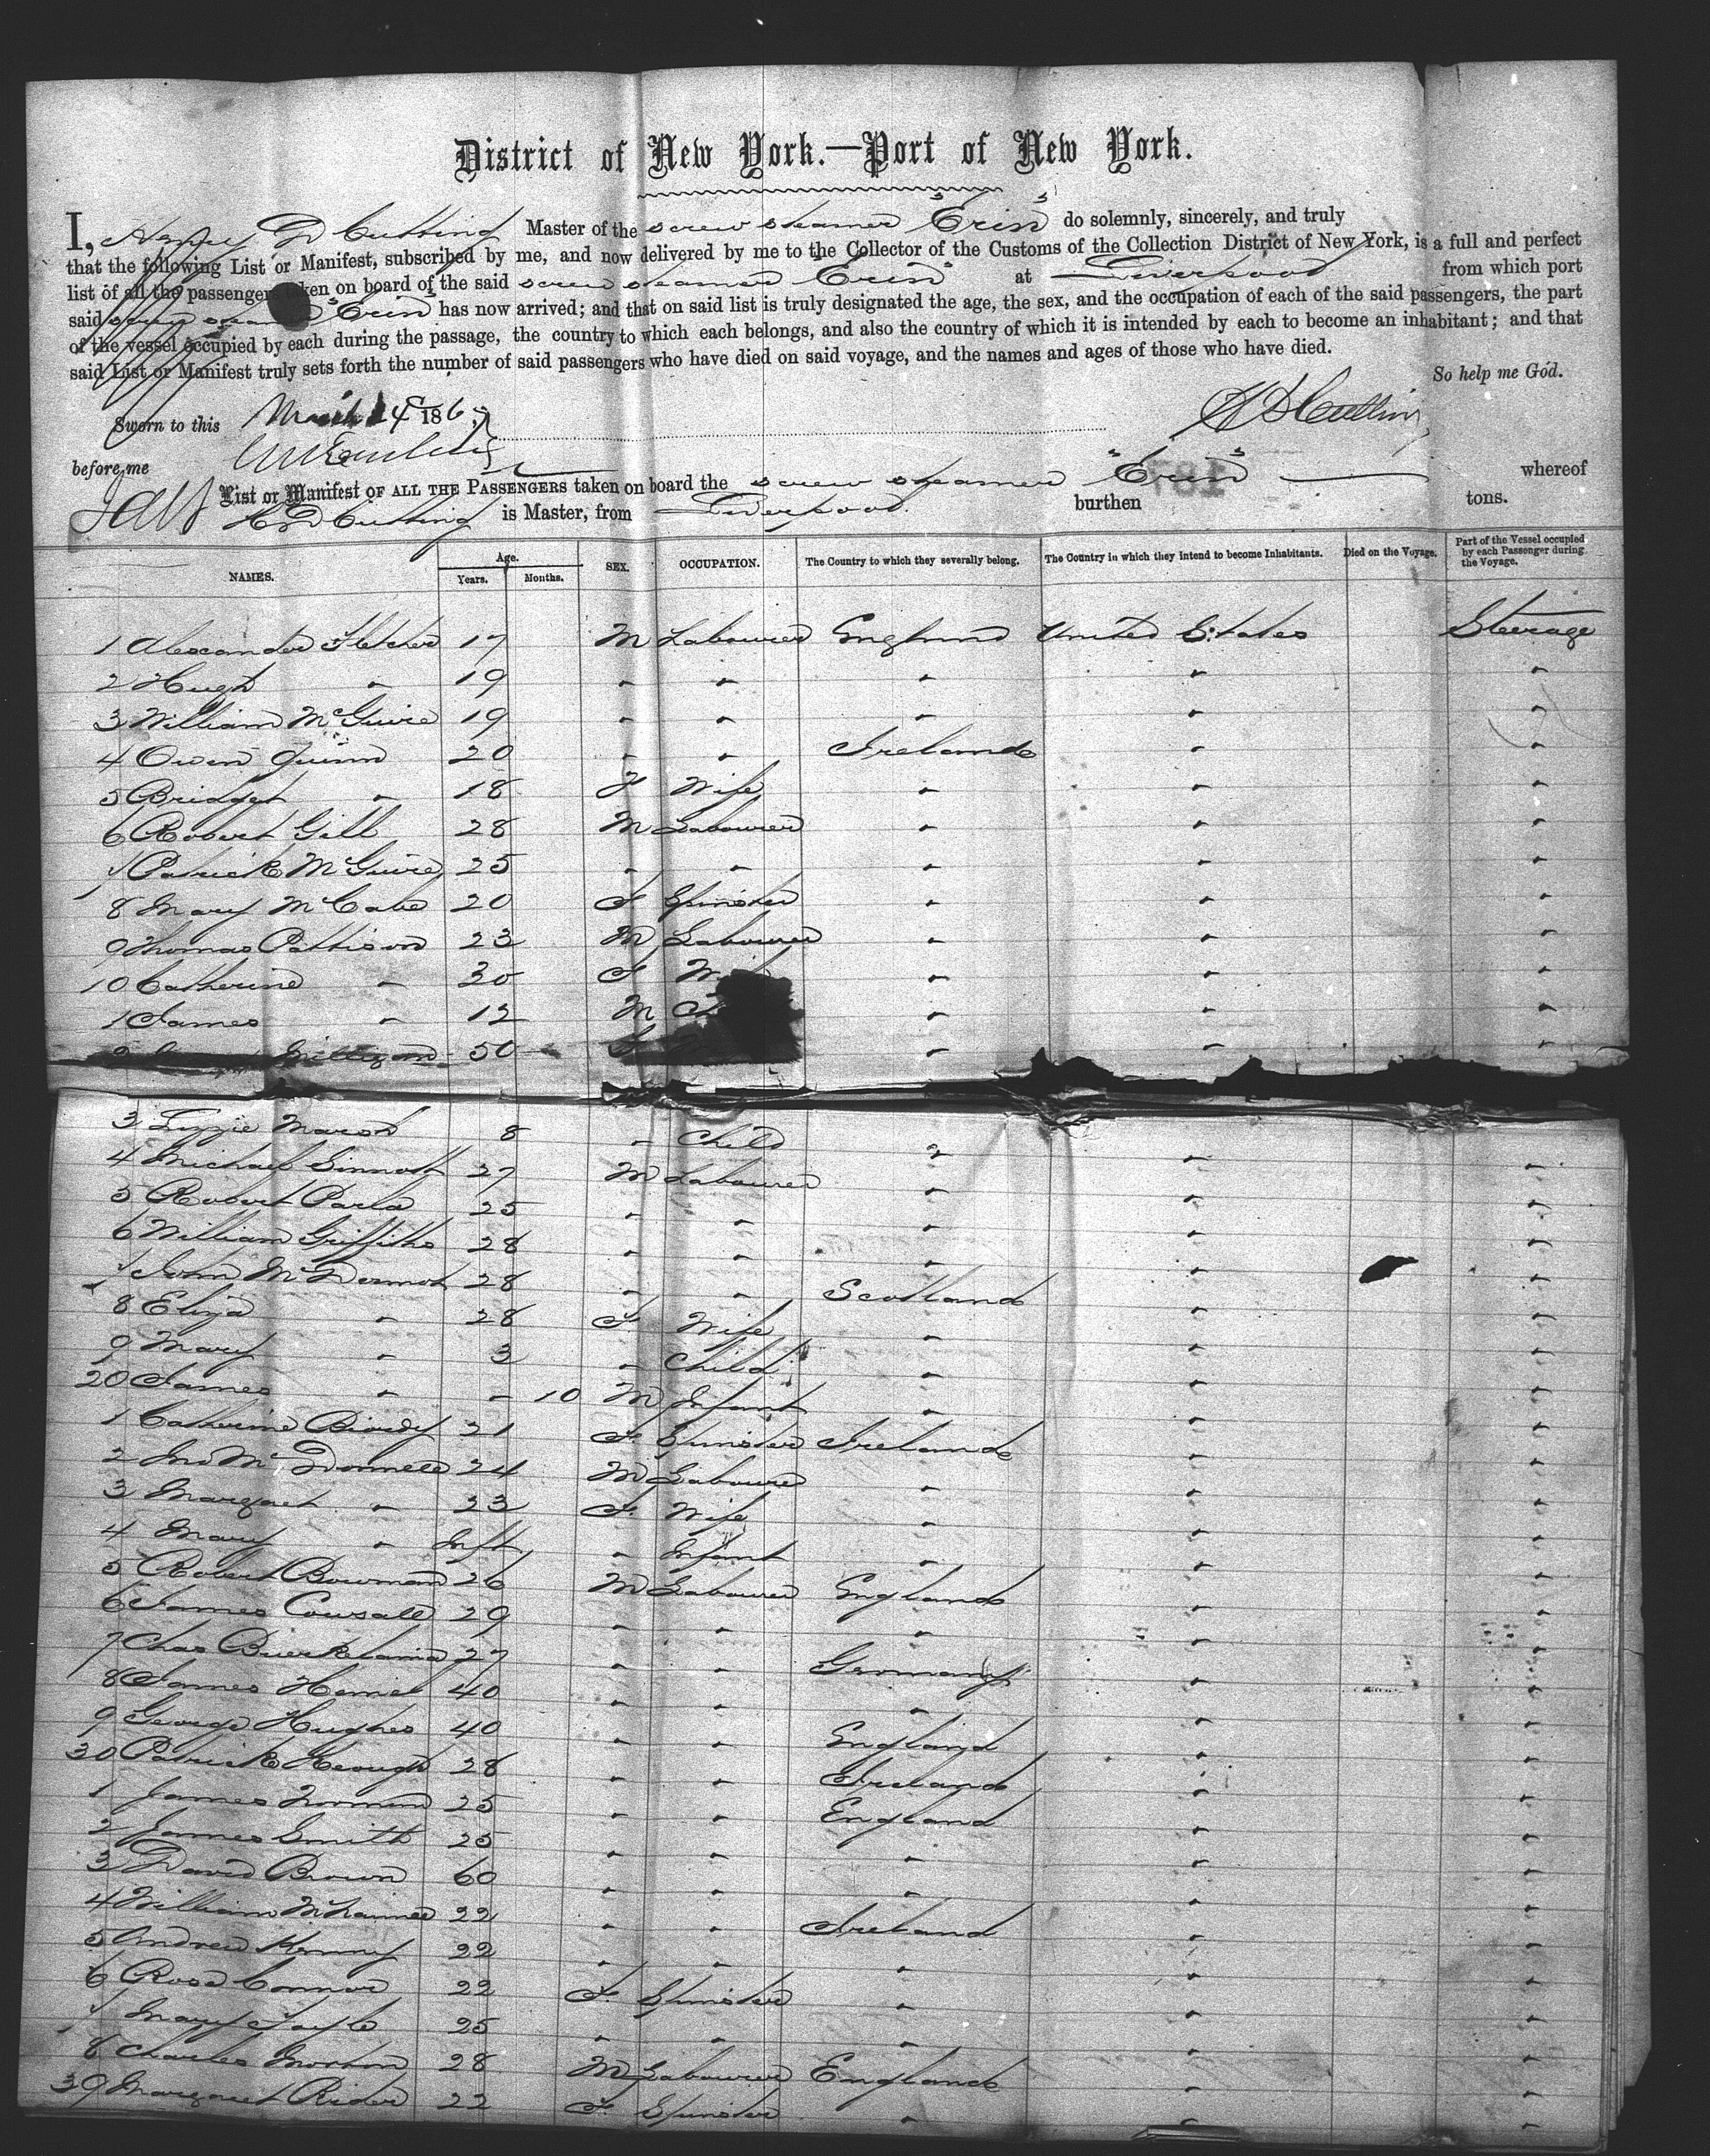 District of New York.—Port of New York.
I, Henry D Cutting Master of the screw steamer "Erin" do solemnly, sincerely, and truly
that the following List or Manifest, subscribed by me, and now delivered by me to the Collector of the Customs of the Collection District of New York, is a full and perfect
list of all the passengers taken on board of the said screw steamer "Erin" at Liverpool from which port
said screw steamer "Erin" has now arrived; and that on said list is truly designated the age, the sex, and the occupation of each of the said passengers, the part
of the vessel occupied by each during the passage, the country to which each belongs, and also the country of which it is intended by each to become an inhabitant; and that
said List or Manifest truly sets forth the number of said passengers who have died on said voyage, and the names and ages of those who have died.
So help me God.
Sworn to this March 186 H D Cutting
before me
List or Manifest OF ALL THE PASSENGERS taken on board the screw steamer "Erin" whereof
H D Cutting is Master, from Liverpool burthen tons.
NAMES. Age. Years. Months. SEX. OCCUPATION. The Country to which they severally belong. The Country in which they intend to become Inhabitants. Died on the Voyage. Part of the Vessel occupied by each Passenger during the Voyage.
1 Alexander Fletcher 17 M Labourer England United States Steerage
2 Hugh " 19 " " " " "
3 William McGuire 19 " " " " "
4 Owen Quinn 20 " " Ireland " "
5 Bridget " 18 F Wife " " "
6 Robert Gill 28 M Labourer " " "
7 Patrick McGuire 25 " " " " "
8 Mary McCabe 20 F Spinster " " "
9 Thomas Pattison 23 M Labourer " " "
10 Catherine " 30 F Wife " " "
1 James " 12 M " " "
2 Milligan 50 F " " "
3 Lizzie Marsh 8 " Child " " "
4 Michael Sinnott 27 M Labourer " " "
5 Robert 25 " " " " "
6 William Griffiths 28 " " " " "
7 John McDermot 28 " " Scotland " "
8 Eliza " 28 F Wife " " "
9 Mary " 3 " Child " " "
20 James " - 10 M Infant " " "
1 Catherine 21 F Spinster Ireland " "
2 Jno McDonnell 24 M Labourer " " "
3 Margaet " 23 F Wife " " "
4 Mary " Inft " Infant " " "
5 Robert Bowman 26 M Labourer England " "
6 James 29 " " " " "
7 Chas 27 " " Germany " "
8 James 40 " " " " "
9 George Hughes 40 " " England " "
30 Patrick Keough 28 " " Ireland " "
1 James Norman 25 " " England " "
2 James Smith 25 " " " " "
3 David Brown 60 " " " " "
4 William 22 " " Ireland " "
5 Andrew Kenny 22 " " " " "
6 Rosa Connor 22 F Spinster " " "
7 Mary 25 " " " " "
8 Charles 28 M Labourer England " "
39 Margaret Rider 22 F Spinster " " "